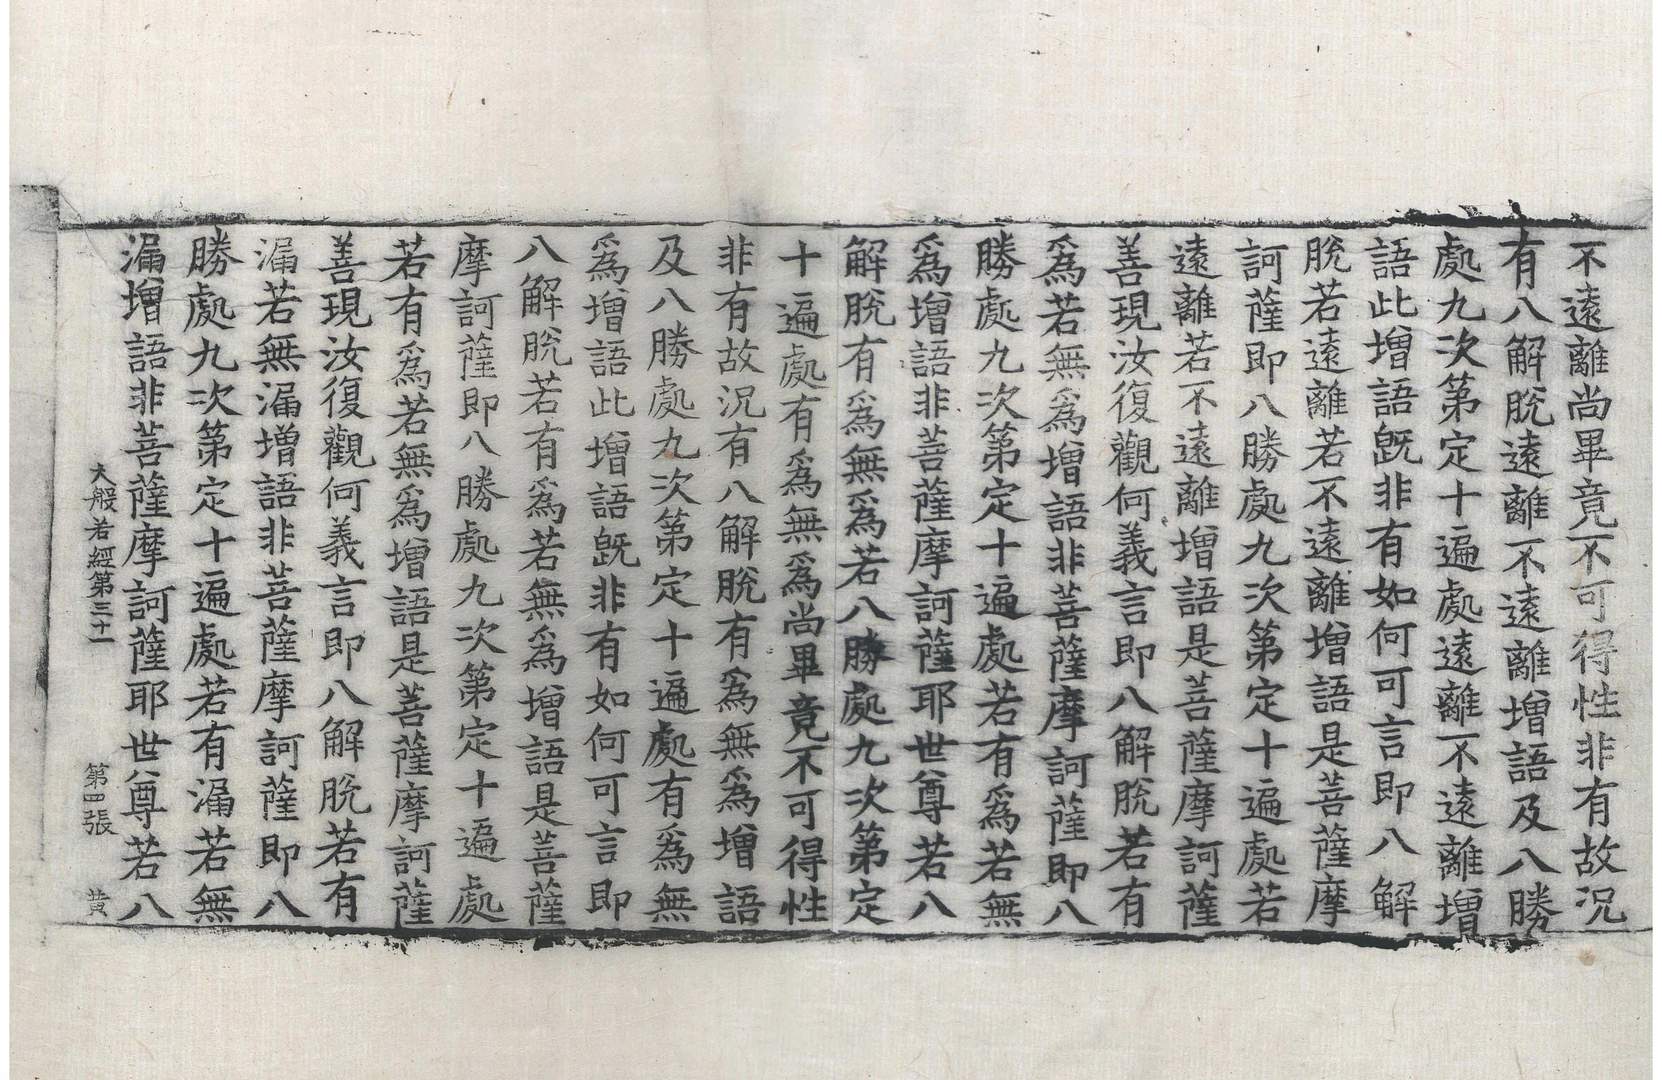 不遠離尚畢竟不可得性非有故況
有八解脫遠離不遠離增語及八勝
處九次第定十遍處遠離不遠離增
語此增語旣非有如何可言即八解
脫若遠離若不遠離增語是菩薩摩
訶薩即八勝處九次第定十遍處若
遠離若不遠離增語是菩薩摩訶薩
善現汝復觀何義言即八解脫若有
爲若無爲增語非菩薩摩訶薩即八
勝處九次第定十遍處若有爲若無
爲增語非菩薩摩訶薩耶世尊若八
解脫有爲無爲若八勝處九次第定
十遍處有爲無爲尚畢竟不可得性
非有故況有八解脫有爲無爲增語
及八勝處九次第定十遍處有爲無
爲增語此增語旣非有如何可言即
八解脫若有爲若無爲增語是菩薩
摩訶薩即八勝處九次第定十遍處
若有爲若無爲增語是菩薩摩訶薩
善現汝復觀何義言即八解脫若有
漏若無漏增語非菩薩摩訶薩即八
勝處九次第定十遍處若有漏若無
漏增語非菩薩摩訶薩耶世尊若八
大般若經第三十一 第四張 黄